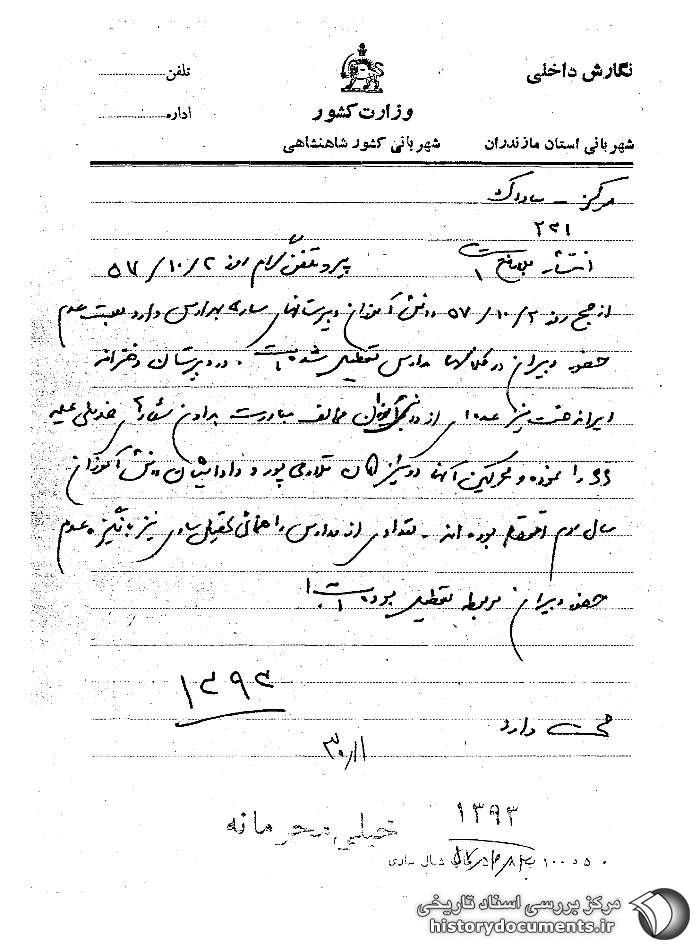 نگارش داخلی
تلفن
وزارت کشور
اداره
شهربانی استان مازندران
شهربانی کشور شاهنشاهی
مرکز - ساواک
۲۳۱
انتشار بلامانع است
پیرو تلفن گرام روز ۵۷/۱۰/۲
از صبح روز ۵۷/۱۰/۲ دانش آموزان دبیرستانهای ساری بمدارس وارد بعلت عدم
حضور دبیران در کلاسها مدارس تعطیل شده است. در دبیرستان دخترانه
ایراندخت نیز عده‌ای از دانش آموزان مخالف مبادرت بدادن شعارهای ضد ملی علیه
را نموده و محرکین آنها دوشیزگان تلارمی پور و دادائیان دانش آموزان
سال سوم اقتصاد بوده اند - تعدادی از مدارس راهنمائی تحصیلی ساری نیز بانگیزه عدم
حضور دبیران مربوطه تعطیل بوده است
۱۳۹۳
صحت دارد
۳۰/۱
خیلی محرمانه
۱۳۹۳
مرکز بررسی اسناد تاریخی
historydocuments.ir